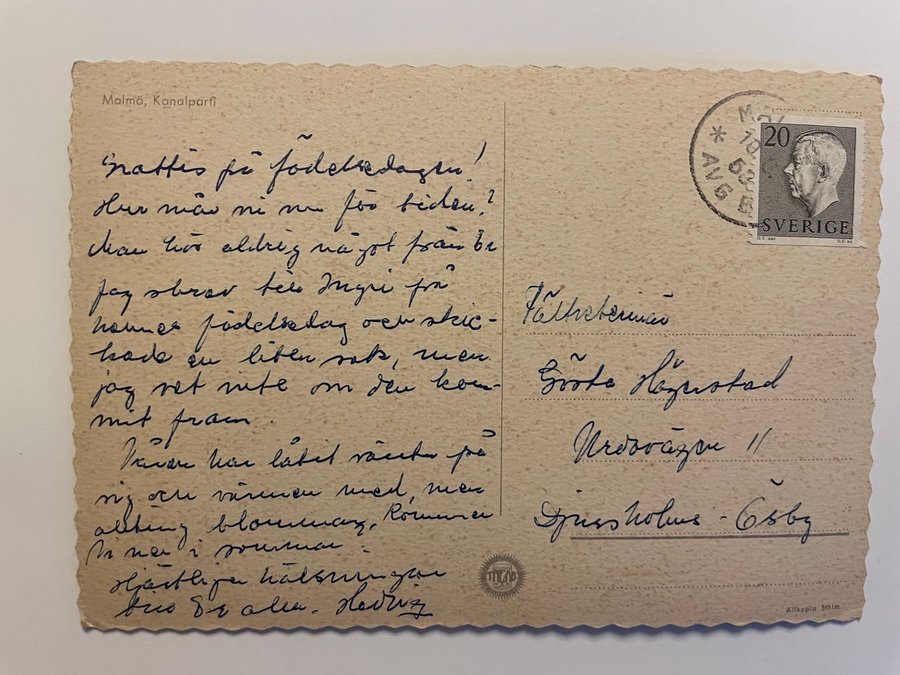 Malmö, Kanalparti
Grattis på födelsedagen!
Hur mår ni nu för tiden?
Man hör aldrig något från Er
Jag skrev till Ingri på
hennes födelsedag och skic-
kade en liten sak, men
jag vet inte om den kom-
mit fram.
Våren har låtit vänta på
sig och värmen med, men
allting blommar. Kommer
Ni ner i sommar?
Hjärtliga hälsningar
Er alla. Hedvig
MAL
AVG
20
SVERIGE
Gösta Hägerstad
Urdavägen 11
Djursholms-Ösby
Allkopia Sthlm